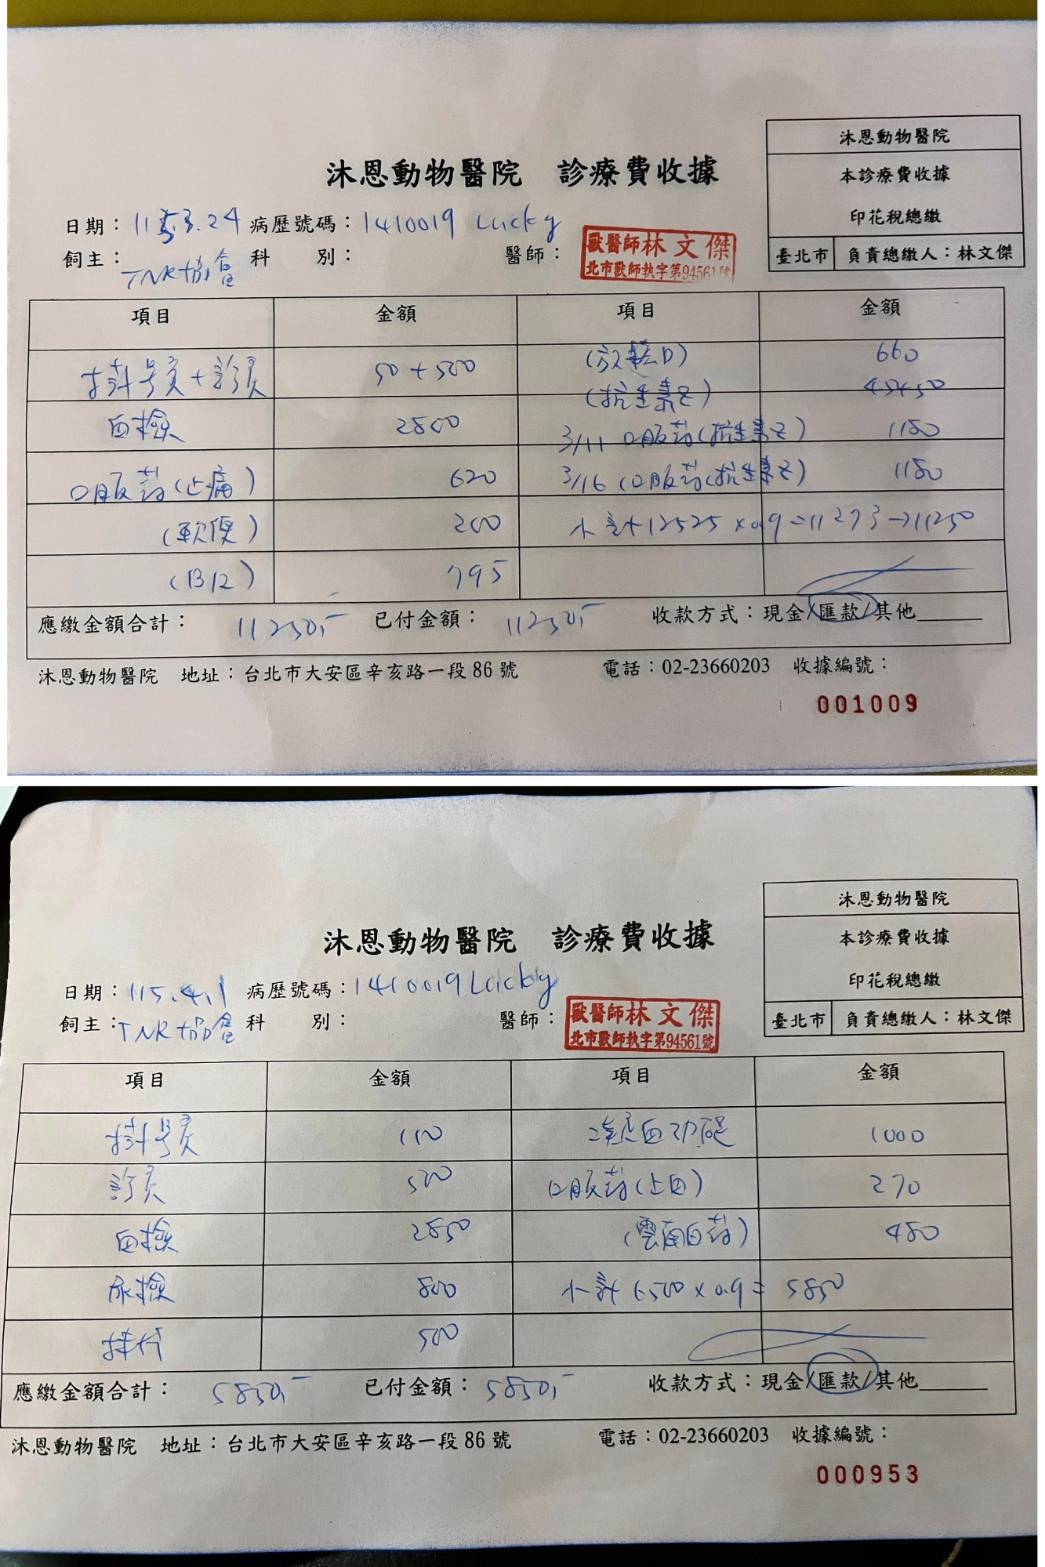 沐恩動物醫院
本診療費收據
印花稅總繳
臺北市 負責總繳人：林文傑
沐恩動物醫院 診療費收據
日期：115.3.24 病歷號碼：1410019 Lucky
飼主：TNR協會 科 別： 醫師：
獸醫師林文傑
北市獸師執字第94561號
項目 金額 項目 金額
掛號費+診費 50+500 (放鬆D) 660
(抗生素Z)
血檢 2800 3/11 口服葯(抗生素Z) 1180
口服葯(止痛) 620 3/16 口服葯(抗生素Z) 1180
(軟便) 200 小計12525×0.9=11273→11250
(B12) 795
應繳金額合計：11250,- 已付金額：11250,- 收款方式：現金/匯款/其他
沐恩動物醫院 地址：台北市大安區辛亥路一段86號 電話：02-23660203 收據編號：
001009
沐恩動物醫院
本診療費收據
印花稅總繳
臺北市 負責總繳人：林文傑
沐恩動物醫院 診療費收據
日期：115.4.1 病歷號碼：1410019 Lucky
飼主：TNR協會 科 別： 醫師：
獸醫師林文傑
北市獸師執字第94561號
項目 金額 項目 金額
掛號費 100 凝血功能 1000
診費 500 口服葯(止血) 270
血檢 2850 (雲南白葯) 480
尿檢 800 小計6500×0.9=5850
500
應繳金額合計：5850,- 已付金額：5850,- 收款方式：現金/匯款/其他
沐恩動物醫院 地址：台北市大安區辛亥路一段86號 電話：02-23660203 收據編號：
000953